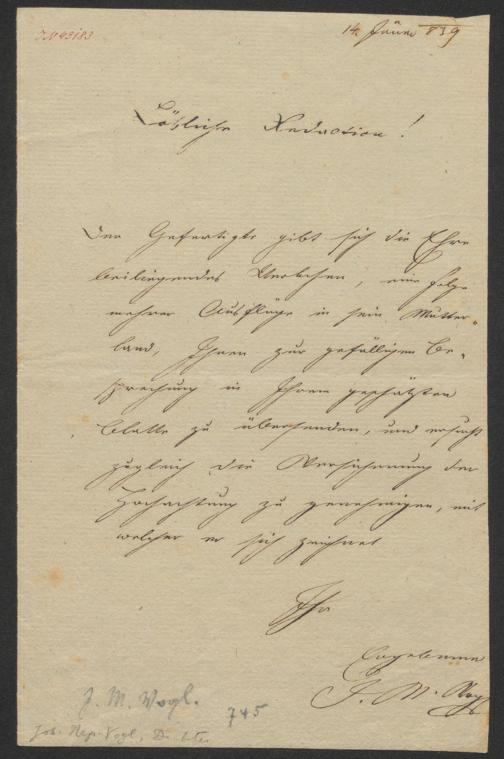 IN 43183
14. Jäner 839
Löbliche Redaction!
Der Gefertigte gibt sich die Ehre
beiliegendes Werkchen, eine Folge
mehrer Ausflüge in sein Mutter-
land, Ihnen zur gefälligen Be-
sprechung in Ihrem geschätzten
Blatte zu übersenden, und ersucht
zugleich die Versicherung der
Hochachtung zu genehmigen, mit
welcher er sich zeichnet
Ihr
Ergebener
J. M. Vogl
J. M. Vogl.
745
Joh. Nep. Vogl, Dichter